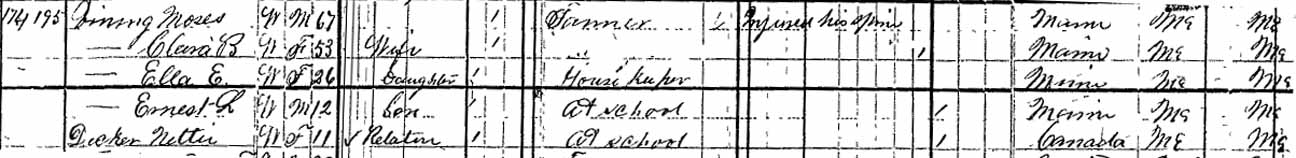 174 195 Dining Moses W M 67 / Tanner / Injured his spine Maine Me Me
— Clara B W F 53 Wife / " / Maine Me Me
— Ella E. W F 26 Daughter / House keeper Maine Me Me
— Ernest L W M 12 Son / At school / Maine Me Me
Decker Nettie W F 11 ✓ Relation / At school / Canada Me Me